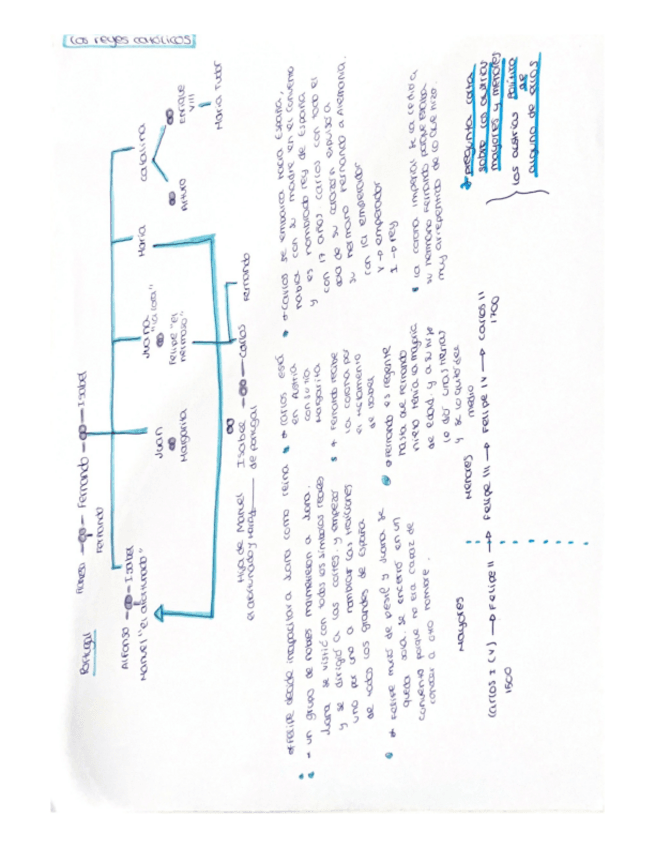 Los reyes católicos
Portugal
Fernando
Fernando
Isabel
Alfonso
Isabel
Manuel "el afortunado"
Juan
Margarita
Juana
"la loca"
Felipe "el
hermoso"
María
Catalina
Arturo
Enrique
VIII
María Tudor
Hija de Manuel
el afortunado y María
Isabel
de Portugal
Carlos
Fernando
Felipe decide incapacitar a Juana como reina
un grupo de nobres
Juana se vistió con todos los simbolos reales
y se dirigió a las cortes. y empezó
uno por uno a nombrar las traiciones
de todos los grandes de España
Felipe murió de peste y Juana se
queda sola. se encerró en un
convento porque no era capaz de
a otro hombre.
Carlos está
en Austria
con su tia
Margarita
Fernando recibe
la corona por
el testamento
de Isabel
Fernando es regente
hasta que Fernando
nieto tenía la mayoría
de edad y a su hijo
le dio unas tierras
y se lo quitó del
medio
Carlos se embarca hacia España,
habla con su madre en el convento
y es nombrado rey de España
con 17 años. Carlos con todo el
dolor de su corazón expulsó a
su hermano Fernando a Alemania.
con la emperador
V → emperador
I → rey
la corona imperial se la cedió a
su hermano Fernando porque estaba
muy arrepentido de lo que hizo.
Mayores
Menores
Carlos I (V) → Felipe II → Felipe III → Felipe IV → Carlos II
1500
1700
* pregunta corta
sobre los austrias
mayores y menores
Los austrias política
de
alguno de ellos